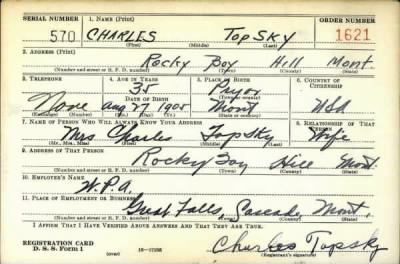 SERIAL NUMBER 1. NAME (Print) ORDER NUMBER
570 CHARLES TopSky 1621
(First) (Middle) (Last)
2. ADDRESS (Print)
Rocky Boy Hill Mont
(Number and street or R. F. D. number) (Town) (County) (State)
3. TELEPHONE 4. AGE IN YEARS 5. PLACE OF BIRTH 6. COUNTRY OF CITIZENSHIP
35 Pryor
DATE OF BIRTH
None Aug 27 1905 Mont USA
(Exchange) (Number) (Mo.) (Day) (Yr.) (State or country)
7. NAME OF PERSON WHO WILL ALWAYS KNOW YOUR ADDRESS 8. RELATIONSHIP OF THAT PERSON
Mrs Charles TopSky Wife
(Mr., Mrs., Miss) (First) (Middle) (Last)
9. ADDRESS OF THAT PERSON
Rocky Boy Hill Mont.
(Number and street or R. F. D. number) (Town) (County) (State)
10. EMPLOYER'S NAME
W.P.A.
11. PLACE OF EMPLOYMENT OR BUSINESS
Great Falls, Cascade Mont.
(Number and street or R. F. D. number) (Town) (County) (State)
I AFFIRM THAT I HAVE VERIFIED ABOVE ANSWERS AND THAT THEY ARE TRUE.
REGISTRATION CARD
D. S. S. Form 1 Charles Topsky
(Registrant's signature)